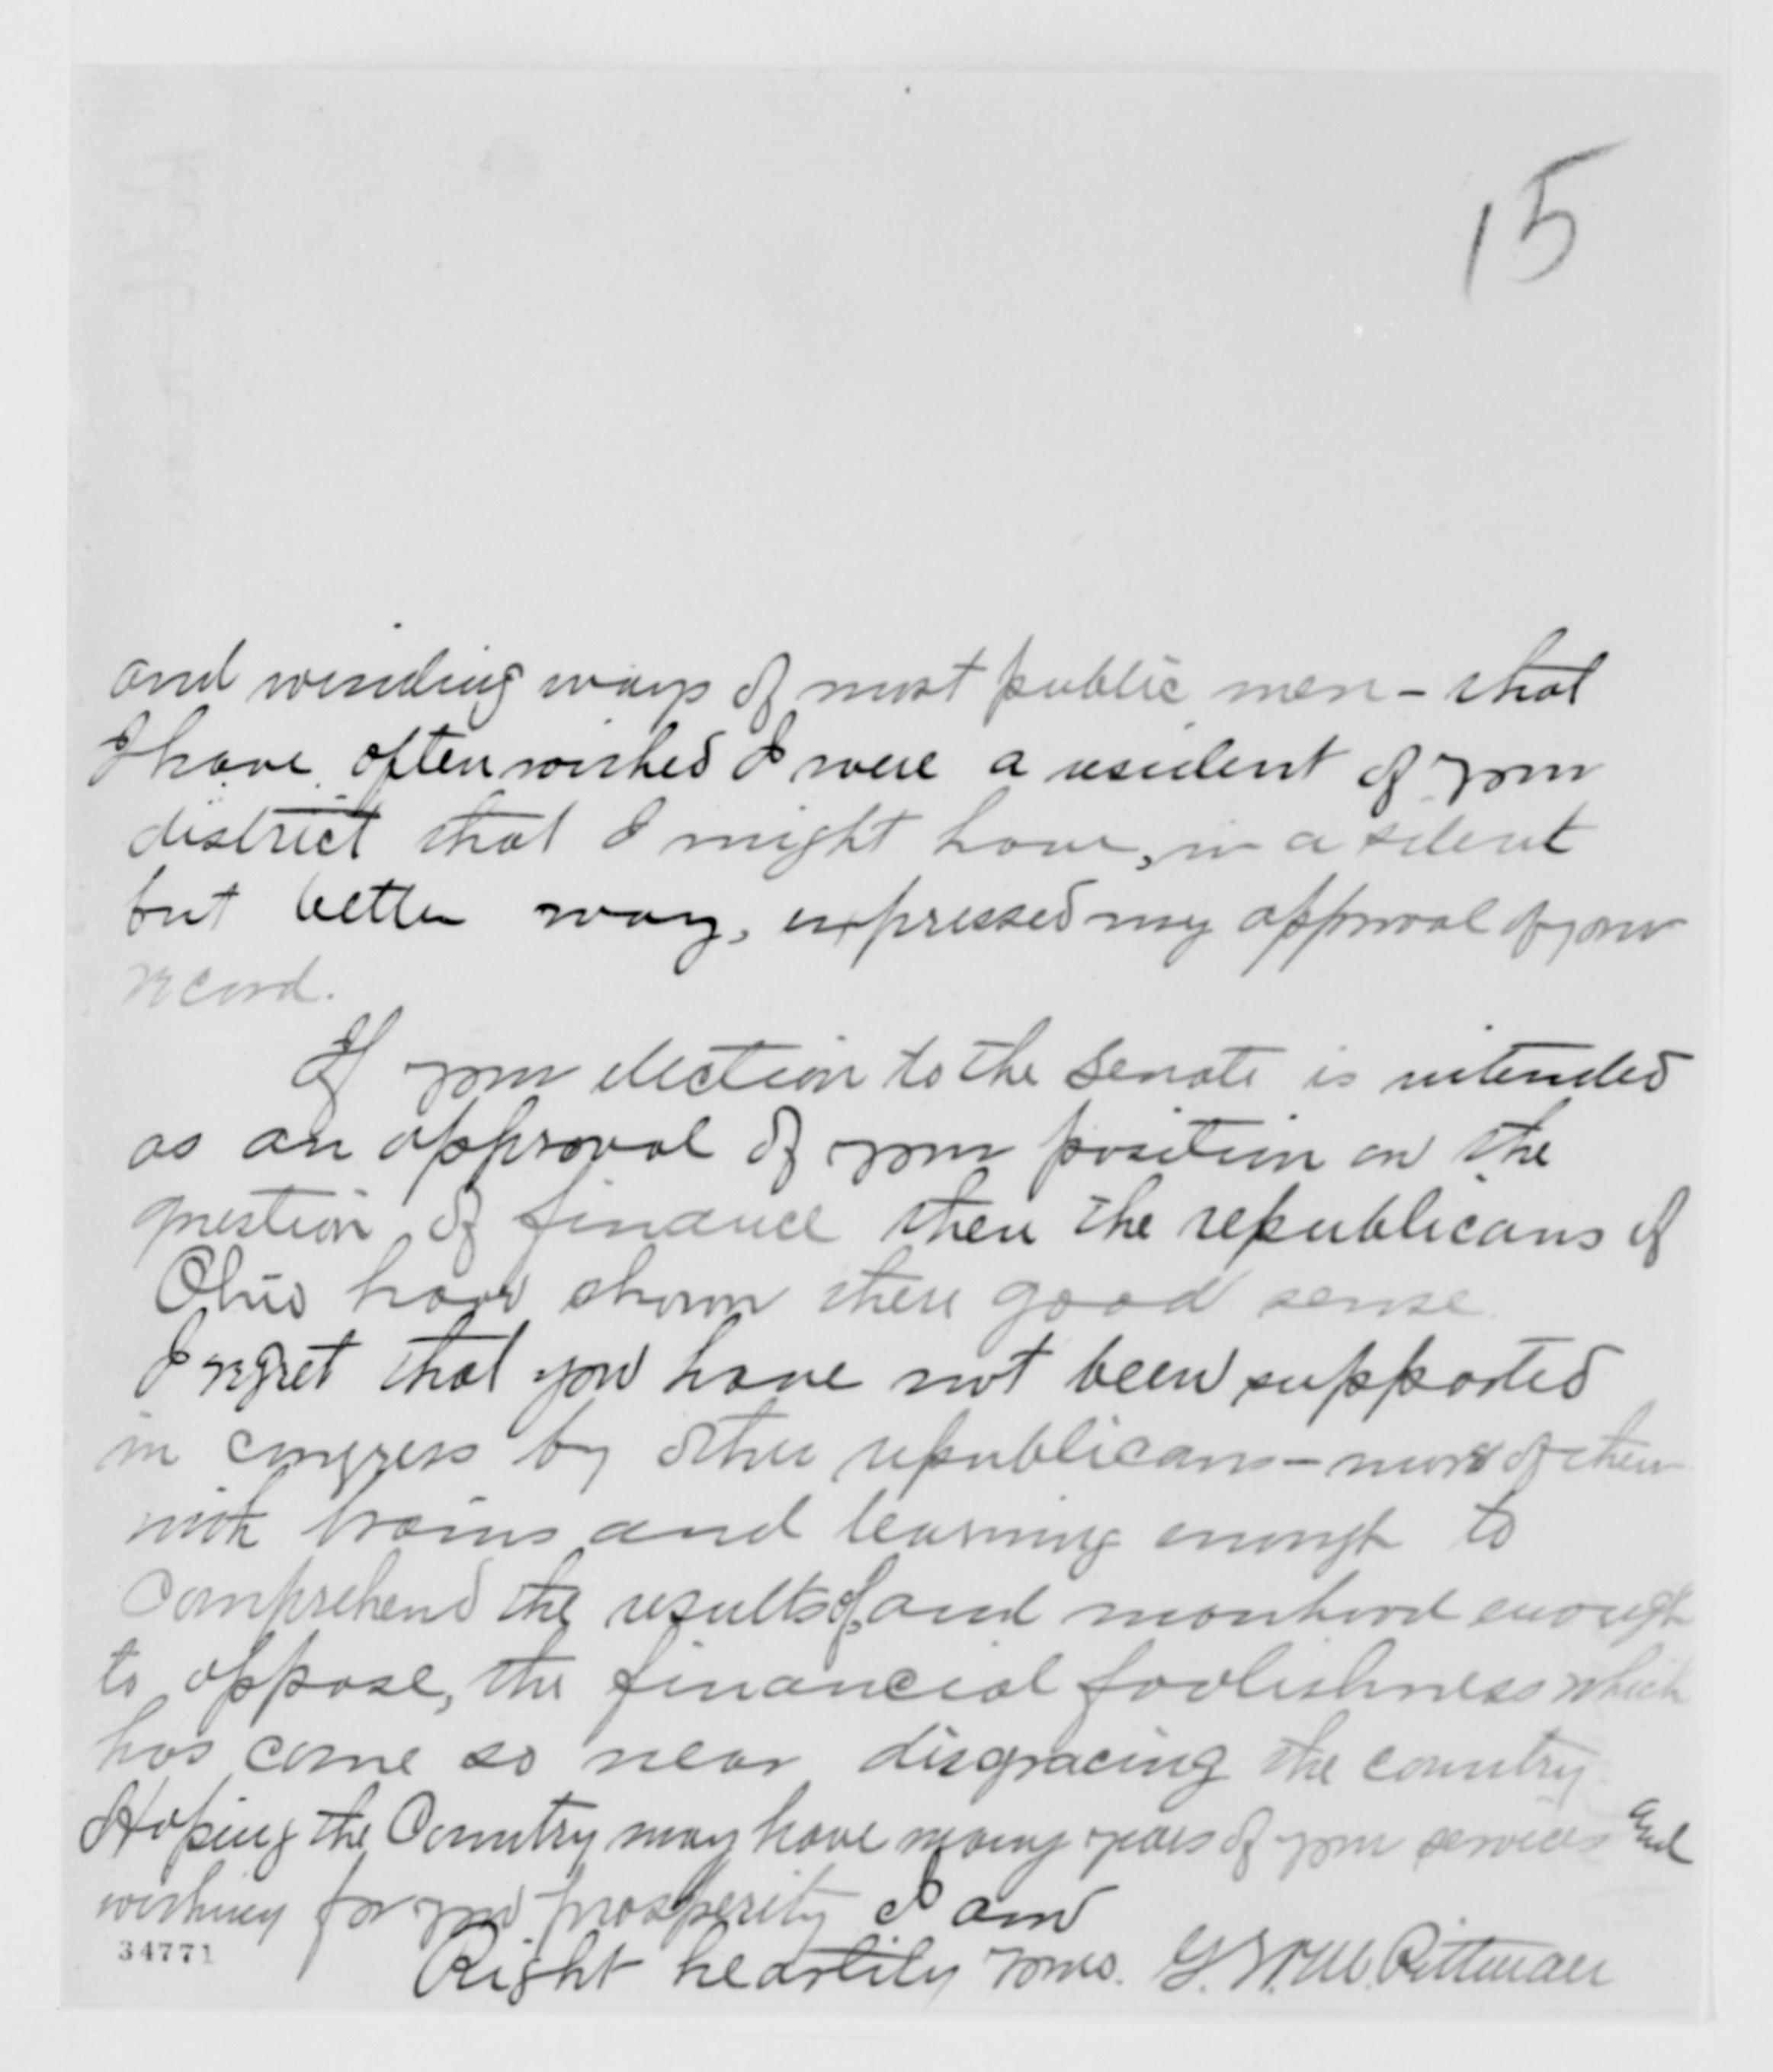 15
and winding ways of most public men - that
I have often wished I were a resident of your
district that I might have, in a silent
but better way, expressed my approval of your
record.
If your election to the Senate is intended
as an approval of your position on the
question of finance then the republicans of
Ohio have shown there good sense
I regret that you have not been supported
in congress by other republicans - more of them
with brains and learning enough to
comprehend the results of, and manhood enough
to oppose, the financial foolishness which
has come so near disgracing the country.
Hoping the Country may have many years of your services and
wishing for you prosperity I am
34771
Right heartily yours. Pittman